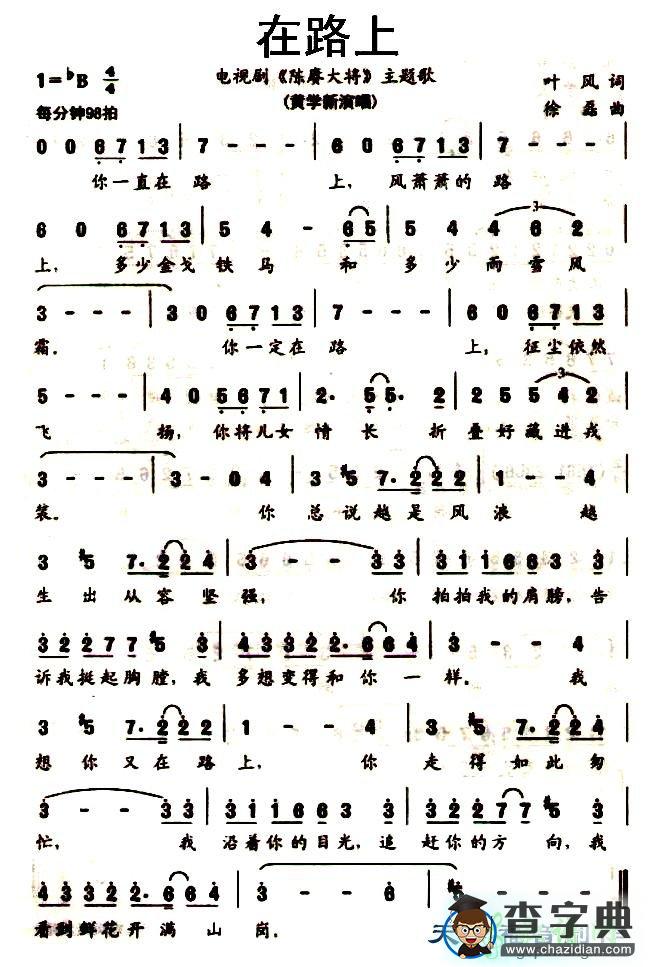 在路上
1=♭B 4/4 电视剧《陈赓大将》主题歌 叶风词
每分钟98拍 (黄学新演唱) 徐磊曲
0 0 6 7 1 3 | 7 - - - | 0 0 6 7 1 3 | 7 - - - |
你一直在路 上，风萧萧的路
6 0 6 7 1 3 | 5 4 - 6 5 | 5 4 4 6 2 |
上，多少金戈铁马和多少雨雪风
3 - - - | 3 0 6 7 1 3 | 7 - - - | 0 0 6 7 1 3 |
霜。你一定在路 上，征尘依然
5 - - - | 4 0 5 6 7 1 | 2. 5 5. 2 | 2 5 5 4 2 |
飞 扬，你将儿女情长 折叠好藏进戎
3 - - - | 3 - - 0 3 | 3 #5 7. 2 2 2 | 1 - - 4 |
装。你总说越是风浪 越
3 #5 7. 2 2 4 | 3 - - 3 3 | 3 1 1 6 6 3 3 |
生出从容坚强，你拍拍我的肩膀，告
3 2 2 7 7 #5 3 | 4 3 3 2 2. 6 6 4 | 3 - - 3 |
诉我挺起胸膛，我多想变得和你一样。我
3 #5 7. 2 2 2 | 1 - - 4 | 3 #5 7. 2 2 4 |
想你又在路上，你走得如此匆
3 - - 3 3 | 3 1 1 6 6 3 3 | 3 2 2 7 7 #5 3 |
忙，我沿着你的目光，追赶你的方向，我
4 3 3 2 2. 6 6 4 | 3 - - - | 3 - - 6 | #5 - - - ‖
看到鲜花开满山岗。
查字典
www.chazidian.com